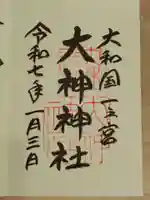 大和国一之宮
大神神社
令和七年一月三日